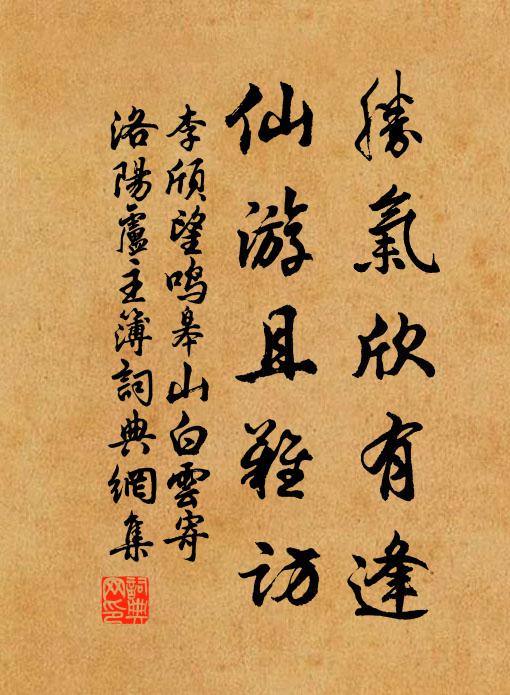 勝氣欣有逢
仙游且難訪
李頎望鳴皋山白雲寄
洛陽盧主簿詞典網集
詞典
网印